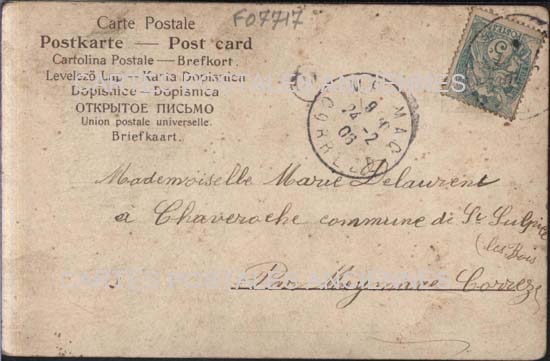 Carte Postale
F07717
Postkarte — Post card
Cartolina Postale — Brefkort.
Levelező Lap — Karta Dopisnica
Dopisnice — Dopisnica
ОТКРЫТОЕ ПИСЬМО
Union postale universelle.
Briefkaart.
24 -2
06
CORRÈZE
5
Mademoiselle Marie Delaurent
à Chaveroche commune de St Sulpice
(les Bois
CARTES POSTALES ANCIENNES
Par Meymac Corrèze